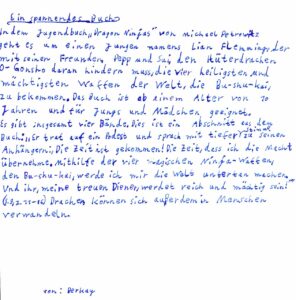 Ein spannendes Buch
In dem Jugendbuch „Dragon Ninjas" von Michael Petrowitz
geht es um einen Jungen namens Lian Flemming, der
mit seinen Freunden, Pepp und Sui, den Hüterdrachen
O-Gonsho daran hindern muss, die vier heiligsten und
mächtigsten Waffen der Welt, die Bu-shu-hai,
zu bekommen. Das Buch ist ab einem Alter von 10
Jahren und für Jungs und Mädchen geeignet.
Es gibt insgesamt vier Bände. Dies ist ein Abschnitt aus dem
Buch: „Er trat auf ein Podest und sprach mit tiefer Stimme zu seinen
Anhängern: Die Zeit ist gekommen! Die Zeit, dass ich die Macht
übernehme. Mithilfe der vier magischen Ninja-Waffen,
den Bu-shu-hai, werde ich mir die Welt untertan machen.
Und ihr, meine treuen Diener, werdet reich und mächtig sein!"
Drachen können sich außerdem in Menschen
verwandeln.
von: Berkay